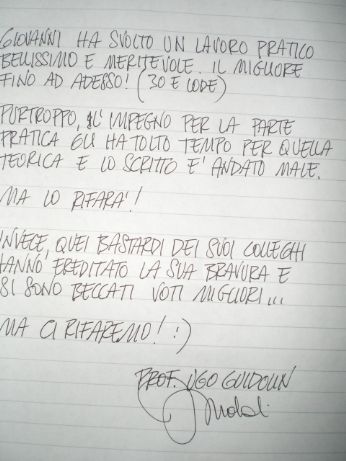 GIOVANNI HA SVOLTO UN LAVORO PRATICO
BELLISSIMO E MERITEVOLE. IL MIGLIORE
FINO AD ADESSO! (30 E LODE)
PURTROPPO, L'IMPEGNO PER LA PARTE
PRATICA GLI HA TOLTO TEMPO PER QUELLA
TEORICA E LO SCRITTO E' ANDATO MALE.
MA LO RIFARA'!
INVECE, QUEI BASTARDI DEI SUOI COLLEGHI
HANNO EREDITATO LA SUA BRAVURA E
SI SONO BECCATI VOTI MIGLIORI...
MA CI RIFAREMO! :)
PROF. UGO GUIDOLIN